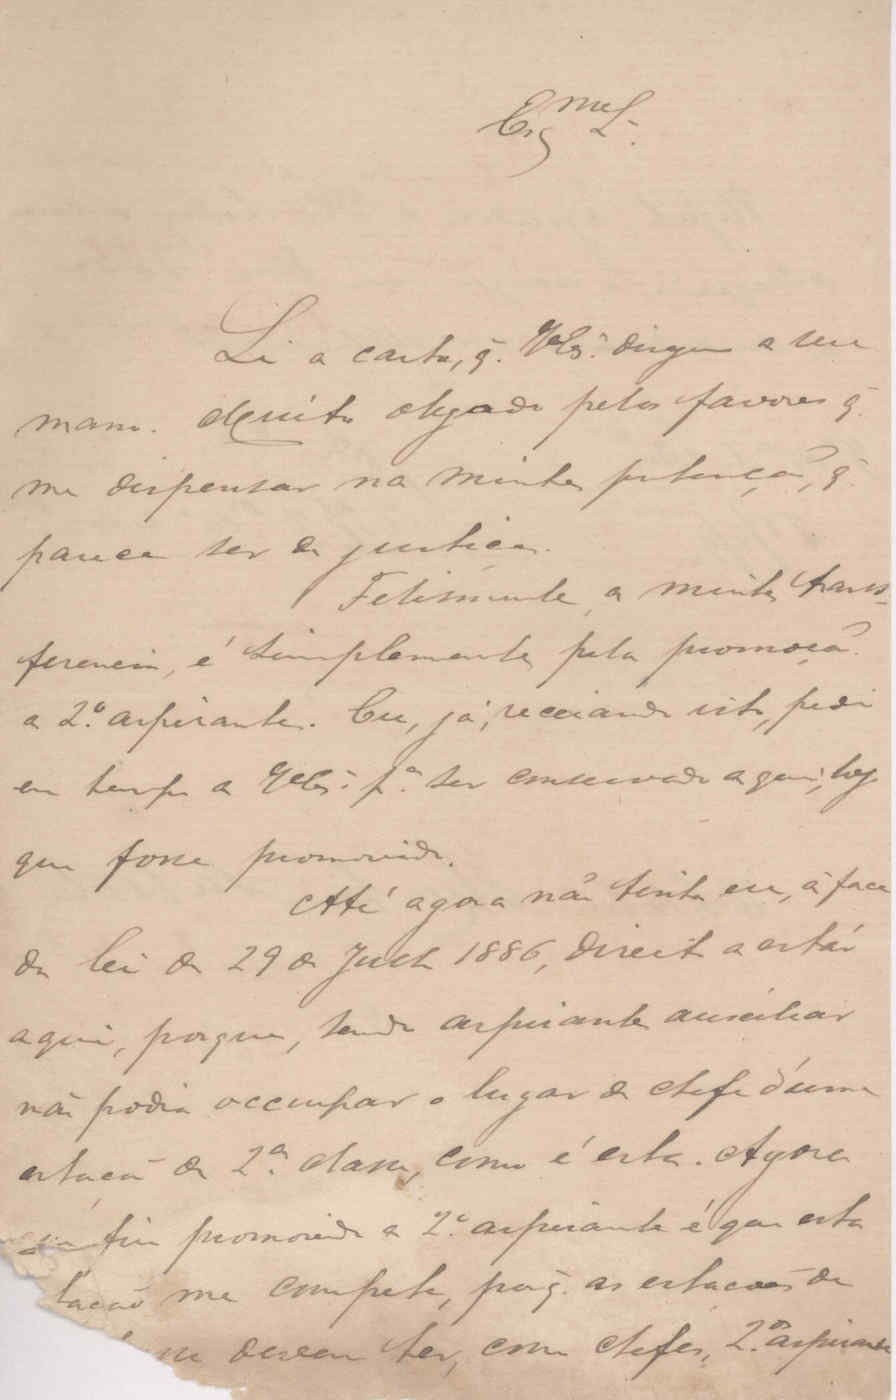 Exmo S.
Li a carta, q. V.Exª. dirigiu a seu
mano. Muito obrigado pelos favores q.
me dispensar na minha pretenção, q.
parece ser de justiça.
Felismente, a minha trans-
ferencia, é simplesmente pela promoção
a 2.º aspirante. Eu, já, receiando isto, pedi
em tempo a V.Exª. pª. ser conservado aqui, logo
que fosse promovido.
Até agora não tinha eu, á face
da lei de 29 de Julho 1886, direito a estár
aqui, porque, sendo aspirante auxiliar
não podia occupar o lugar de chefe d'uma
estação de 2.ª classe, como é esta. Agora
fui promovido a 2.º aspirante é que esta
tação me compete, porq. as estações de
devem ter, como chefes, 2.os aspirantes